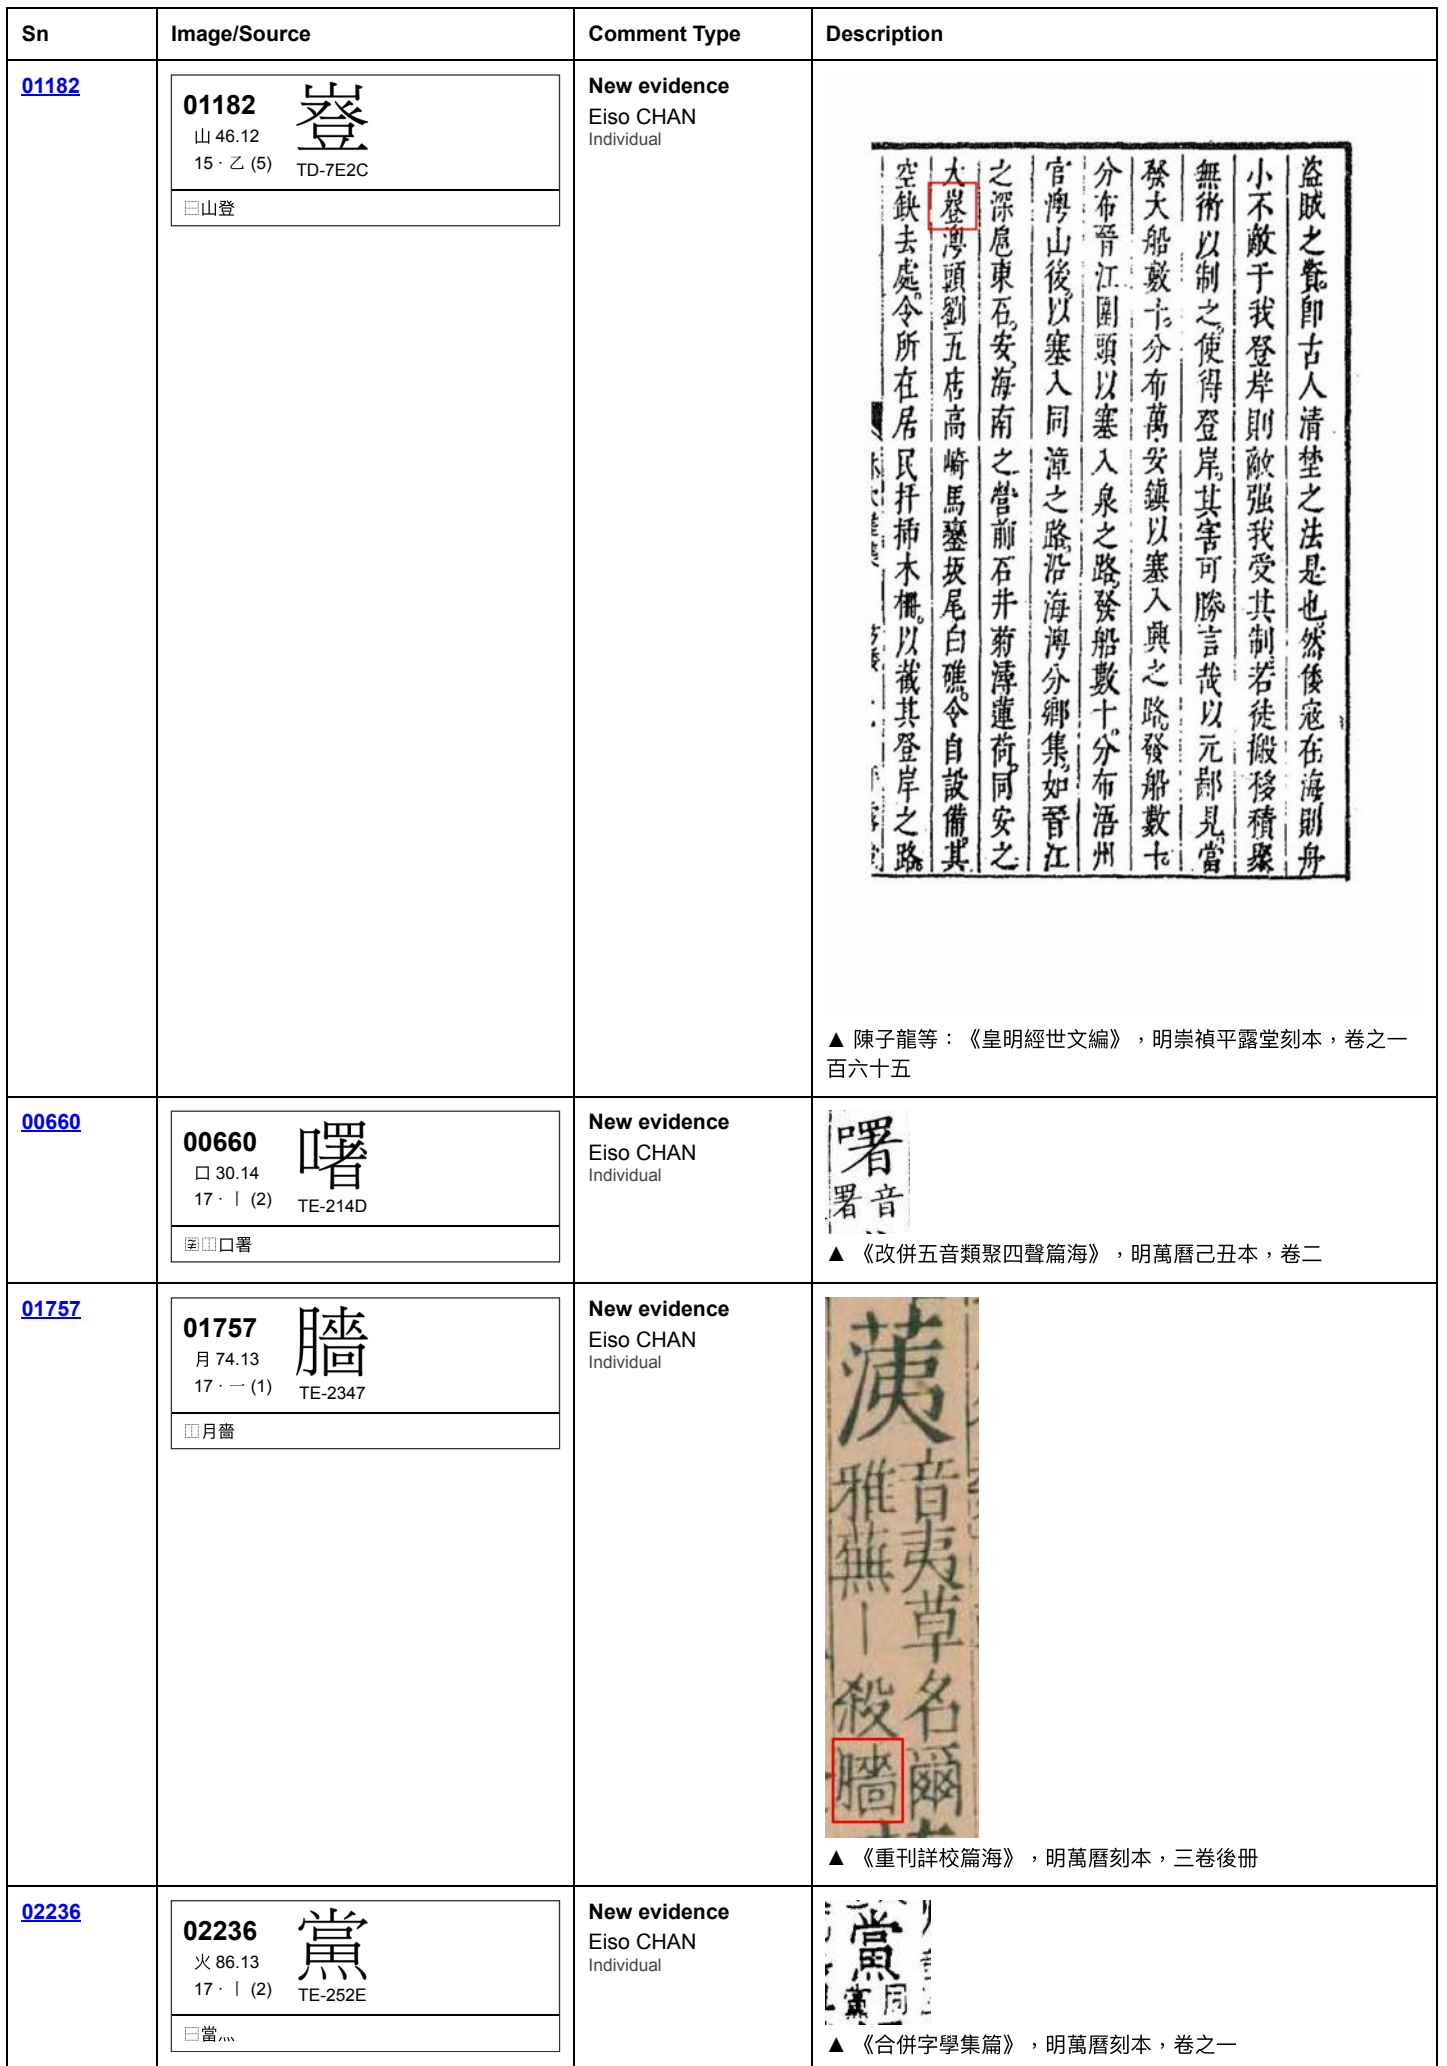 Sn Image/Source Comment Type Description
01182
01182
山 46.12
15 · 乙 (5)
TD-7E2C
⿱山登
New evidence
Eiso CHAN
Individual
盜賊之資。即古人清埜之法是也。然倭寇在海則舟
小不敵于我登岸則敵强我受其制。若徒搬移積聚
無術以制之。使得登岸。其害可勝言哉以元鄙見。當
發大船數十。分布萬安鎮以塞入興之路。發船數十
分布晉江圍頭以塞入泉之路。發船數十。分布浯州
官澳山後。以塞入同漳之路。沿海灣分鄉集。如晉江
之深扈東石。安海南之營前石井菊潯蓮荷。同安之
大嶝灣頭劉五店高崎馬鑾坂尾白礁。令自設備。其
空缺去處。令所在居民扞插木柵。以截其登岸之路
▲ 陳子龍等:《皇明經世文編》,明崇禎平露堂刻本,卷之一
百六十五
00660
00660
口 30.14
17 · 丨 (2)
TE-214D
⿰口署
New evidence
Eiso CHAN
Individual
音
署
▲ 《改併五音類聚四聲篇海》,明萬曆己丑本,卷二
01757
01757
月 74.13
17 · 一 (1)
TE-2347
⿰月嗇
New evidence
Eiso CHAN
Individual
荑
音夷草名爾
雅蕪丨殺
▲ 《重刊詳校篇海》,明萬曆刻本,三卷後册
02236
02236
火 86.13
17 · 丨 (2)
TE-252E
⿱當灬
New evidence
Eiso CHAN
Individual
同
▲ 《合併字學集篇》,明萬曆刻本,卷之一